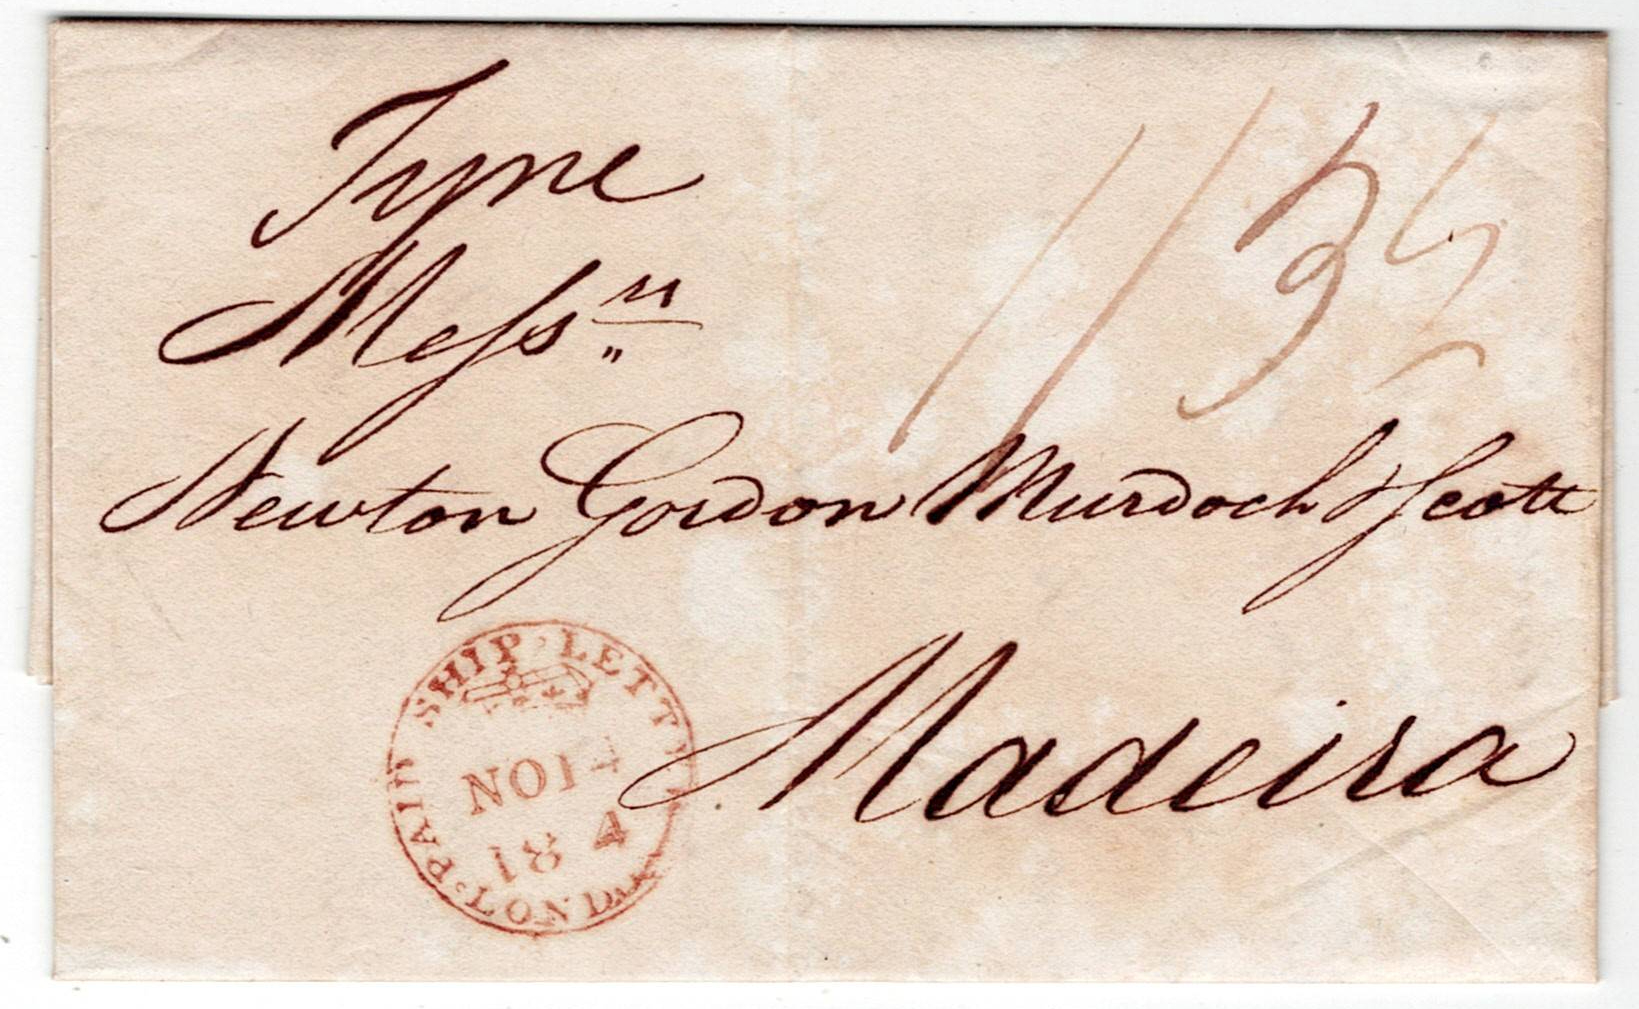 Tyne
Messrs
Newton Gordon Murdoch & Scott
Madeira
PAID SHIP LETTER LONDON
NO 14
18 4